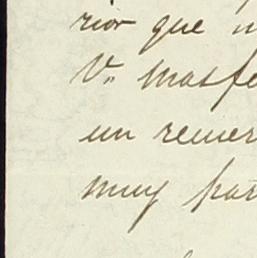 rior que n
V. Masfe
un recuer
muy par